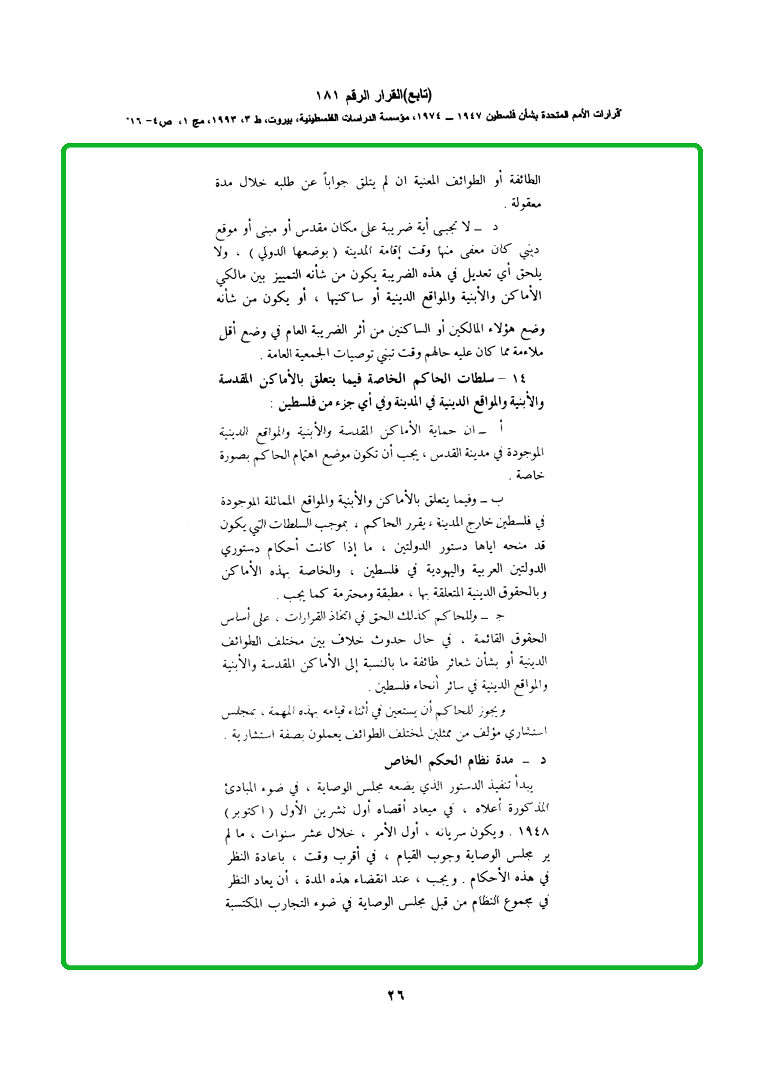 (تابع)القرار الرقم ١٨١
"قرارات الأمم المتحدة بشأن فلسطين ١٩٤٧ ــ ١٩٧٤، مؤسسة الدراسات الفلسطينية، بيروت، ط ٣، ١٩٩٣، مج ١، ص٤- ١٦"
الطائفة أو الطوائف المعنية ان لم يتلق جواباً عن طلبه خلال مدة
معقولة .
د ــ لا تجبى أية ضريبة على مكان مقدس أو مبنى أو موقع
ديني كان معفى منها وقت إقامة المدينة ( بوضعها الدولي ) ، ولا
يلحق أي تعديل في هذه الضريبة يكون من شأنه التمييز بين مالكي
الأماكن والأبنية والمواقع الدينية أو ساكنيها ، أو يكون من شأنه
وضع هؤلاء المالكين أو الساكنين من أثر الضريبة العام في وضع أقل
ملاءمة مما كان عليه حالهم وقت تبني توصيات الجمعية العامة .
١٤ – سلطات الحاكم الخاصة فيما يتعلق بالأماكن المقدسة
والأبنية والمواقع الدينية في المدينة وفي أي جزء من فلسطين :
أ ــ ان حماية الأماكن المقدسة والأبنية والمواقع الدينية
الموجودة في مدينة القدس ، يجب أن تكون موضع اهتمام الحاكم بصورة
خاصة .
ب ــ وفيما يتعلق بالأماكن والأبنية والمواقع المماثلة الموجودة
في فلسطين خارج المدينة ، يقرر الحاكم ، بموجب السلطات التي يكون
قد منحه اياها دستور الدولتين ، ما إذا كانت أحكام دستوري
الدولتين العربية واليهودية في فلسطين ، والخاصة بهذه الأماكن
وبالحقوق الدينية المتعلقة بها ، مطبقة ومحترمة كما يجب .
ج ــ وللحاكم كذلك الحق في اتخاذ القرارات ، على أساس
الحقوق القائمة ، في حال حدوث خلاف بين مختلف الطوائف
الدينية أو بشأن شعائر طائفة ما بالنسبة إلى الأماكن المقدسة والأبنية
والمواقع الدينية في سائر أنحاء فلسطين .
ويجوز للحاكم أن يستعين في أثناء قيامه بهذه المهمة ، بمجلس
استشاري مؤلف من ممثلين لمختلف الطوائف يعملون بصفة استشارية .
د – مدة نظام الحكم الخاص
يبدأ تنفيذ الدستور الذي يضعه مجلس الوصاية ، في ضوء المبادئ
المذكورة أعلاه ، في ميعاد أقصاه أول تشرين الأول ( اكتوبر )
١٩٤٨ . ويكون سريانه ، أول الأمر ، خلال عشر سنوات ، ما لم
ير مجلس الوصاية وجوب القيام ، في أقرب وقت ، باعادة النظر
في هذه الأحكام . ويجب ، عند انقضاء هذه المدة ، أن يعاد النظر
في مجموع النظام من قبل مجلس الوصاية في ضوء التجارب المكتسبة
٢٦